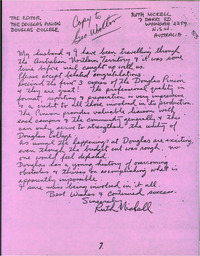 THE EDITOR,
THE DOUGLAS PINION
DOUGLAS COLLEGE
Copy to
Geo Wootton
RUTH NICKELL
7 DAVID RD
2279
N.S.W
AUSTRALIA
My husband & I have been travelling through
the Australian Northern Territory & it was some
time before mail caught up with us.
Please accept belated congratulations.
Received the first 3 copies of the Douglas Pinion
& they are great! The professional quality in
format, writing & preparation is very impressive
& a credit to all those involved in the production.
The Pinion provides valuable liaison with
each campus & the community generally & this
can only serve to strengthen the unity of
Douglas College.
As usual the happenings at Douglas are exciting,
even though the budget cut was rough, no
one would feel defeated.
Douglas has a young history of overcoming
obstacles & thrives on accomplishing what is
apparently impossible.
I miss who being involved in it all.
Best Wishes & Continued success.
Sincerely
Ruth Nickell
7